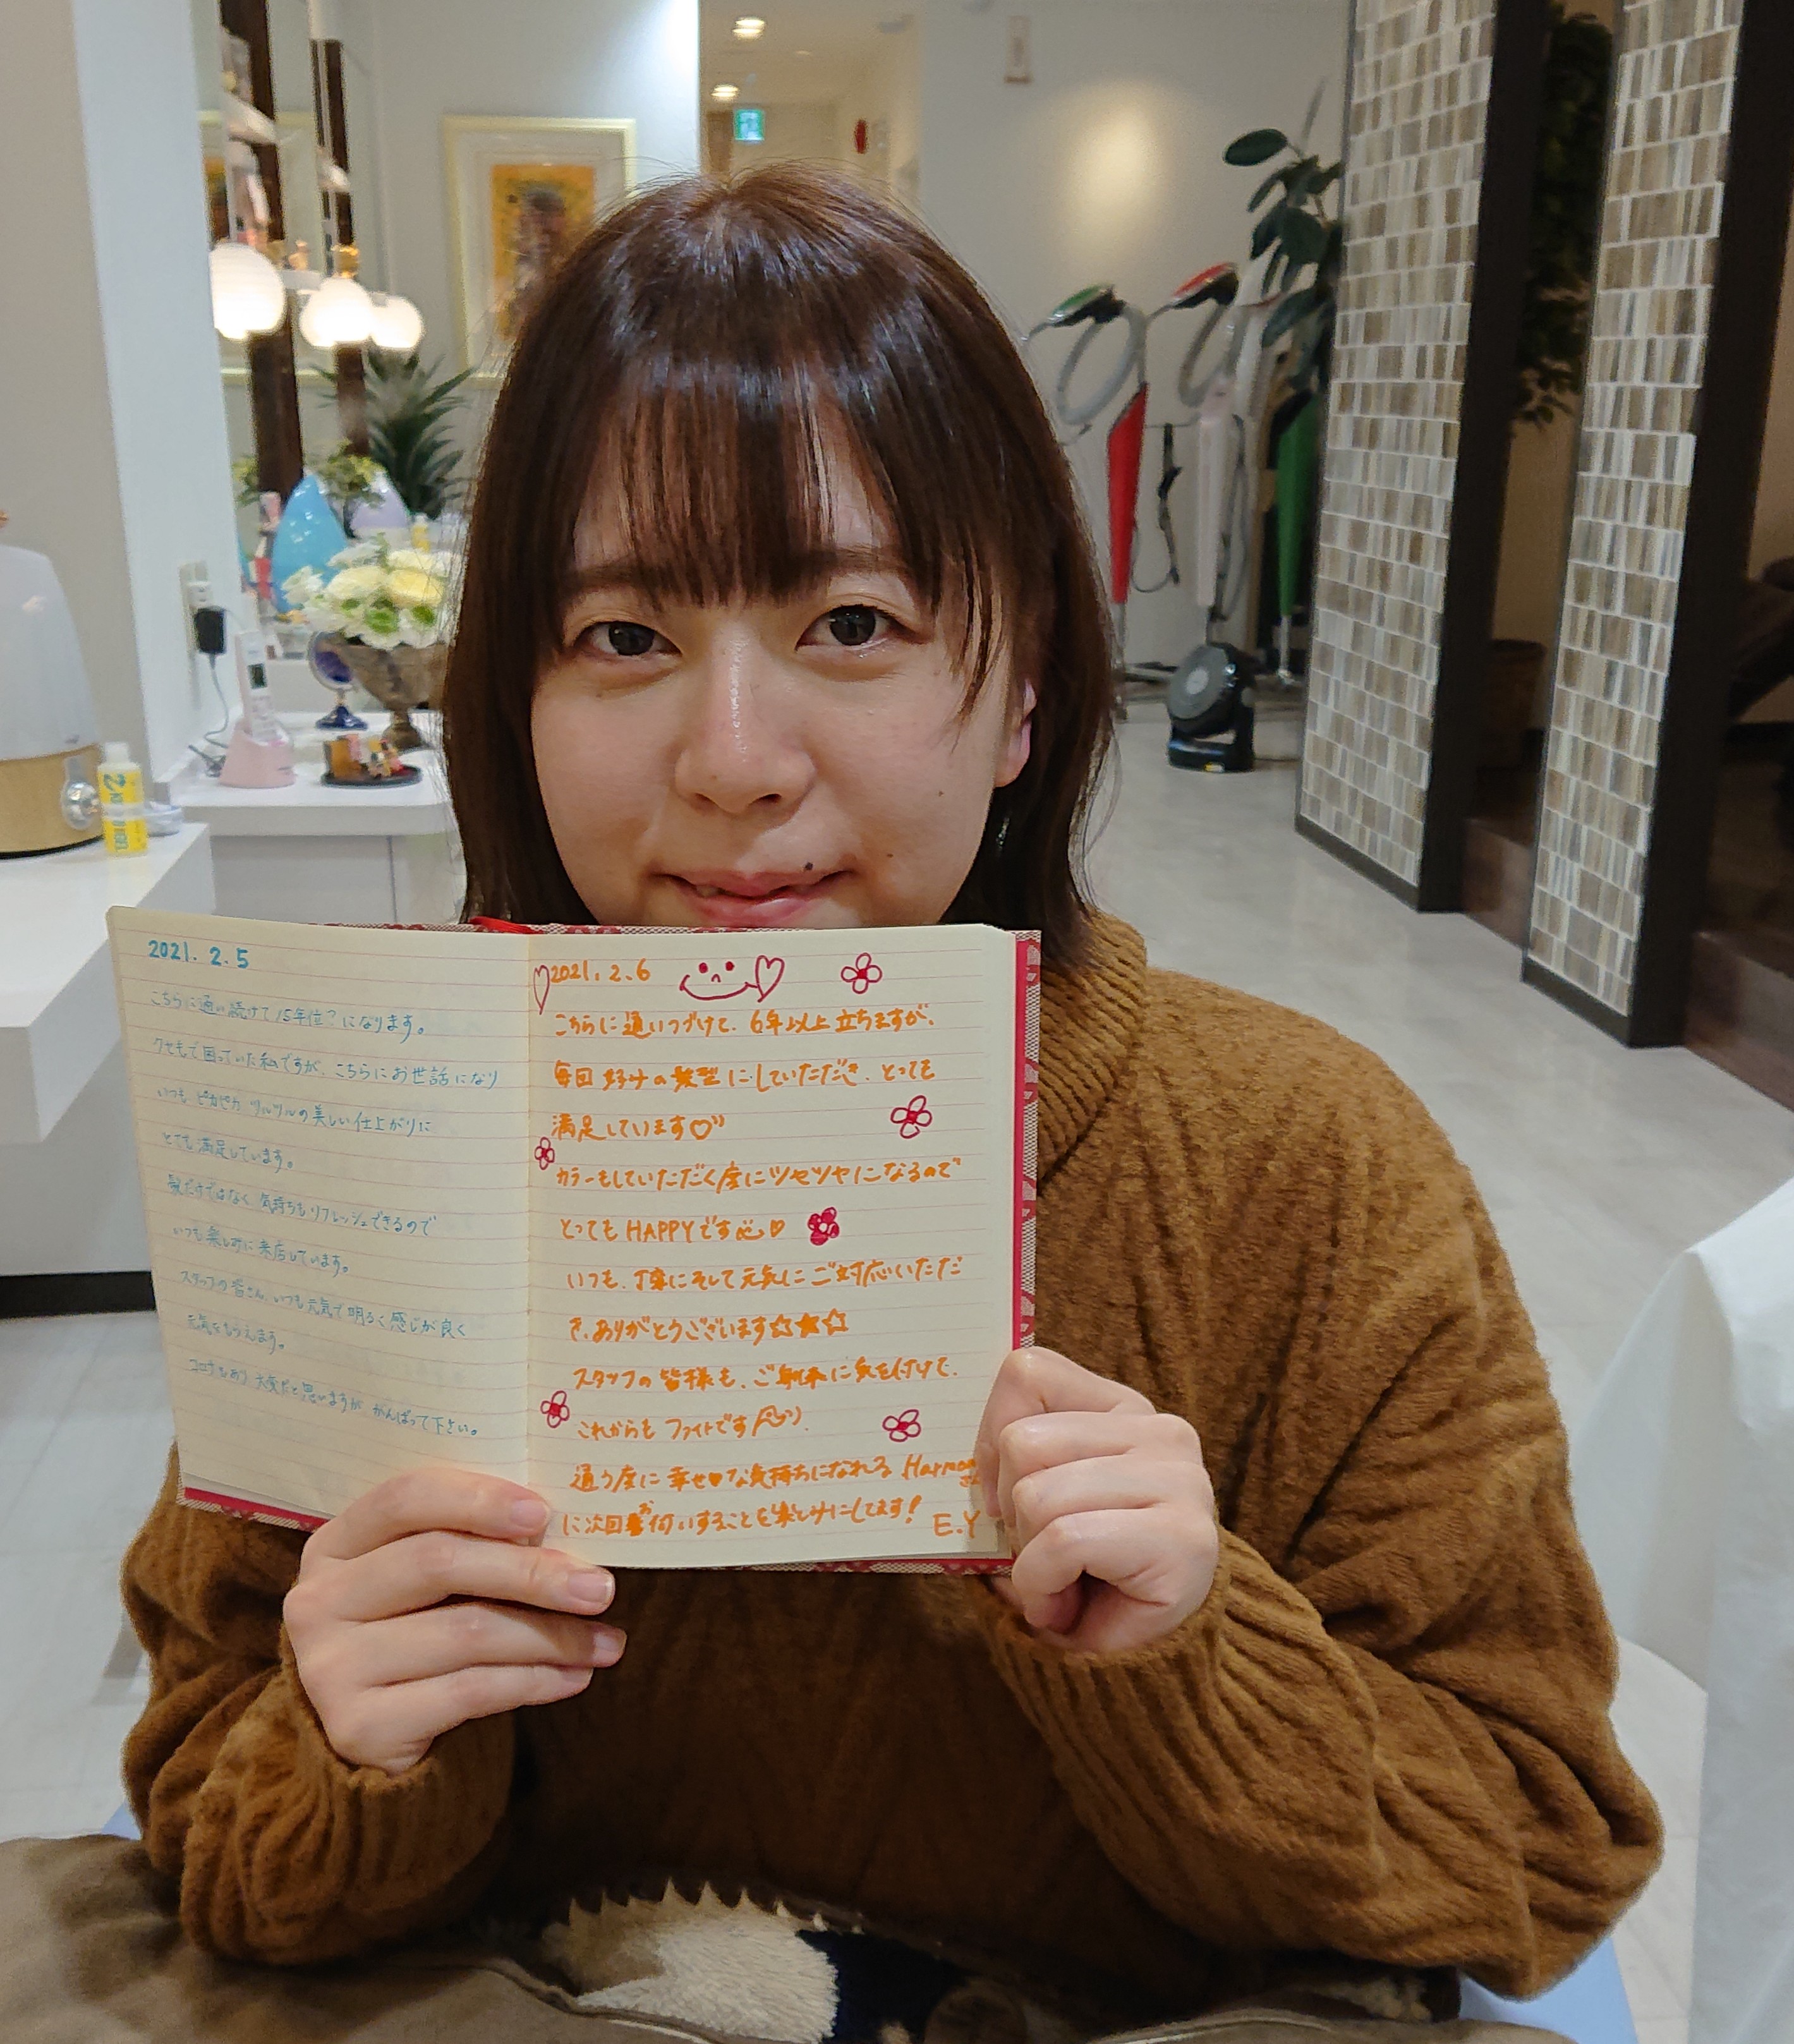 2021. 2. 5
こちらに通い続けて15年位?になります。
クセもで困っていた私ですが、こちらにお世話になり
いつもピカピカ ツルツルの美しい仕上がりに
とても満足しています。
髪だけではなく気持ちもリフレッシュできるので
いつも楽しみに来店しています。
スタッフの皆さん、いつも元気で明るく感じが良く
元気をもらえます。
コロナもあり大変だと思いますが、がんばって下さい。
2021. 2. 6
こちらに通いつづけて、6年以上立ちますが、
毎回好みの髪型にしていただき、とっても
満足しています♡
カラーもしていただく度にツヤツヤになるので
とってもHAPPYです♡
いつも、丁寧にそして元気にご対応いただ
き、ありがとうございます☆★☆
スタッフの皆様も、ご自愛に気を付けて、
これからもファイトです
通う度に幸せ♥な気持ちになれるHarmony
に次回お伺いすることを楽しみにしてます!
E.Y